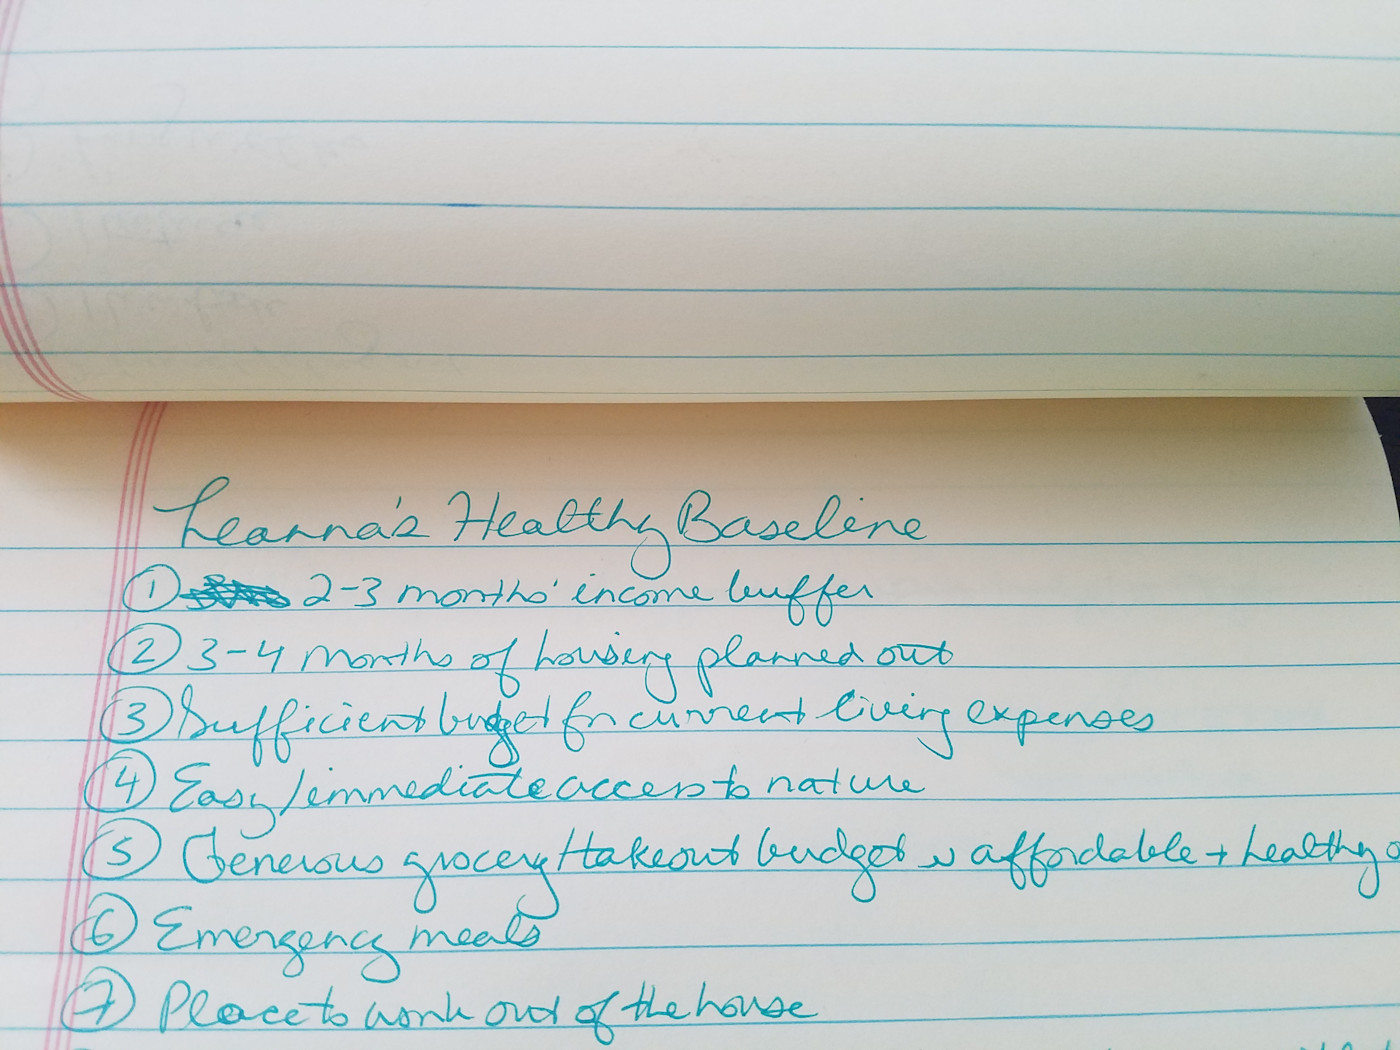 Leanna's Healthy Baseline
① 2-3 months' income buffer
② 3-4 months of housing planned out
③ Sufficient budget for current living expenses
④ Easy/immediate access to nature
⑤ Generous grocery/takeout budget w affordable + healthy
⑥ Emergency meals
⑦ Place to work out of the house